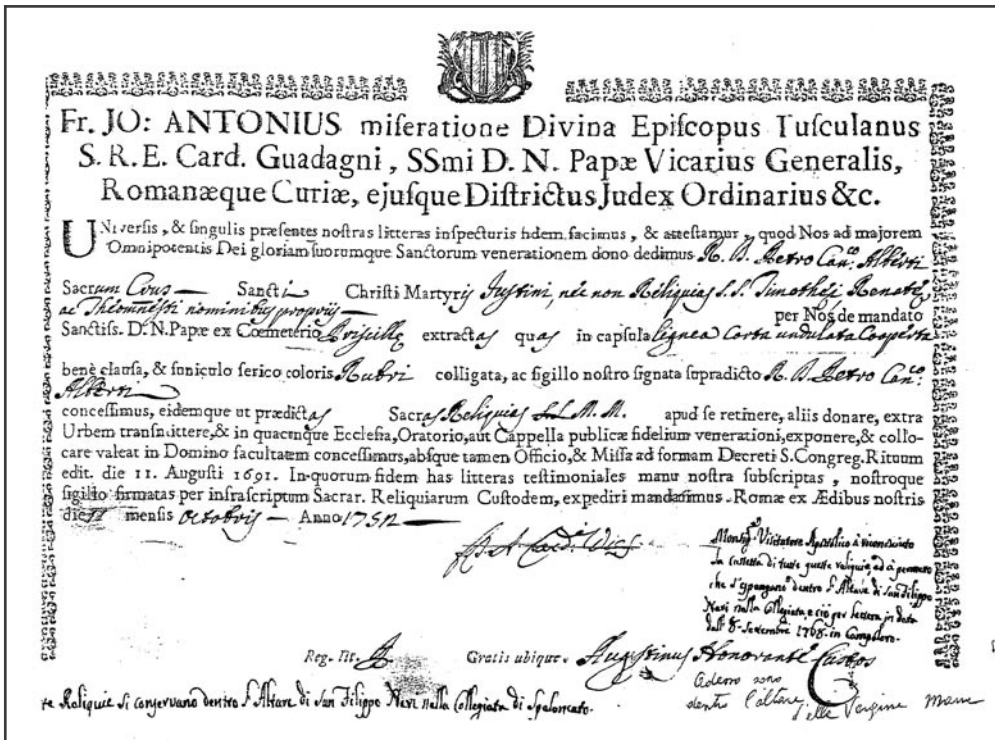 Fr. JO: ANTONIUS miſeratione Divina Epiſcopus Tuſculanus
S. R. E. Card. Guadagni, SSmi D. N. Papæ Vicarius Generalis,
Romanæque Curiæ, ejuſque Diſtrictus Judex Ordinarius &c.
UNiverſis, & ſingulis præſentes noſtras litteras inſpecturis fidem facimus, & atteſtamur, quod Nos ad majorem
Omnipotentis Dei gloriam ſuorumque Sanctorum venerationem dono dedimus R. D. Petro Can.co Alberti
Sacrum Sancti Chriſti Martyris Juſtini, nec non Reliquias S.S. Timothei
ac nominibus propriis per Nos de mandato
Sanctiſs. D. N. Papæ ex Cœmeterio Priſcillæ extractas quas in capſula lignea carta undulata cooperta
benè clauſa, & funiculo ſerico coloris Rubri colligata, ac ſigillo noſtro ſignata ſupradicto R. D. Petro Can.co
Alberti
conceſſimus, eidemque ut prædictas Sacras Reliquias M. M. apud ſe retinere, aliis donare, extra
Urbem tranſmittere, & in quacunque Eccleſia, Oratorio, aut Cappella publicæ fidelium venerationi, exponere, & collo-
care valeat in Domino facultatem conceſſimus, abſque tamen Officio, & Miſſa ad formam Decreti S. Congreg. Rituum
edit. die 11. Auguſti 1691. In quorum fidem has litteras teſtimoniales manu noſtra ſubſcriptas, noſtroque
ſigillo firmatas per infraſcriptum Sacrar. Reliquiarum Cuſtodem, expediri mandavimus. Romæ ex Ædibus noſtris
die menſis Octobris Anno
Card. Vics.
Viſitatore Apoſtolico à riconosciuto
la caſſetta di tutte queſte reliquie, ed à permeſſo
che s'eſpongano dentro l'Altare di San Filippo
Neri nella Collegiata, e ciò per lettera in data
dell' 8. Settembre 1768. in Campoloro.
Reg. Tit. Gratis ubique. Auguſtinus Honorante Cuſtos
Adesso sono
dentro l'altare
della Vergine Maria
te Reliquie si conſervano dentro l'Altare di San Filippo Neri nella Collegiata di Speloncato.